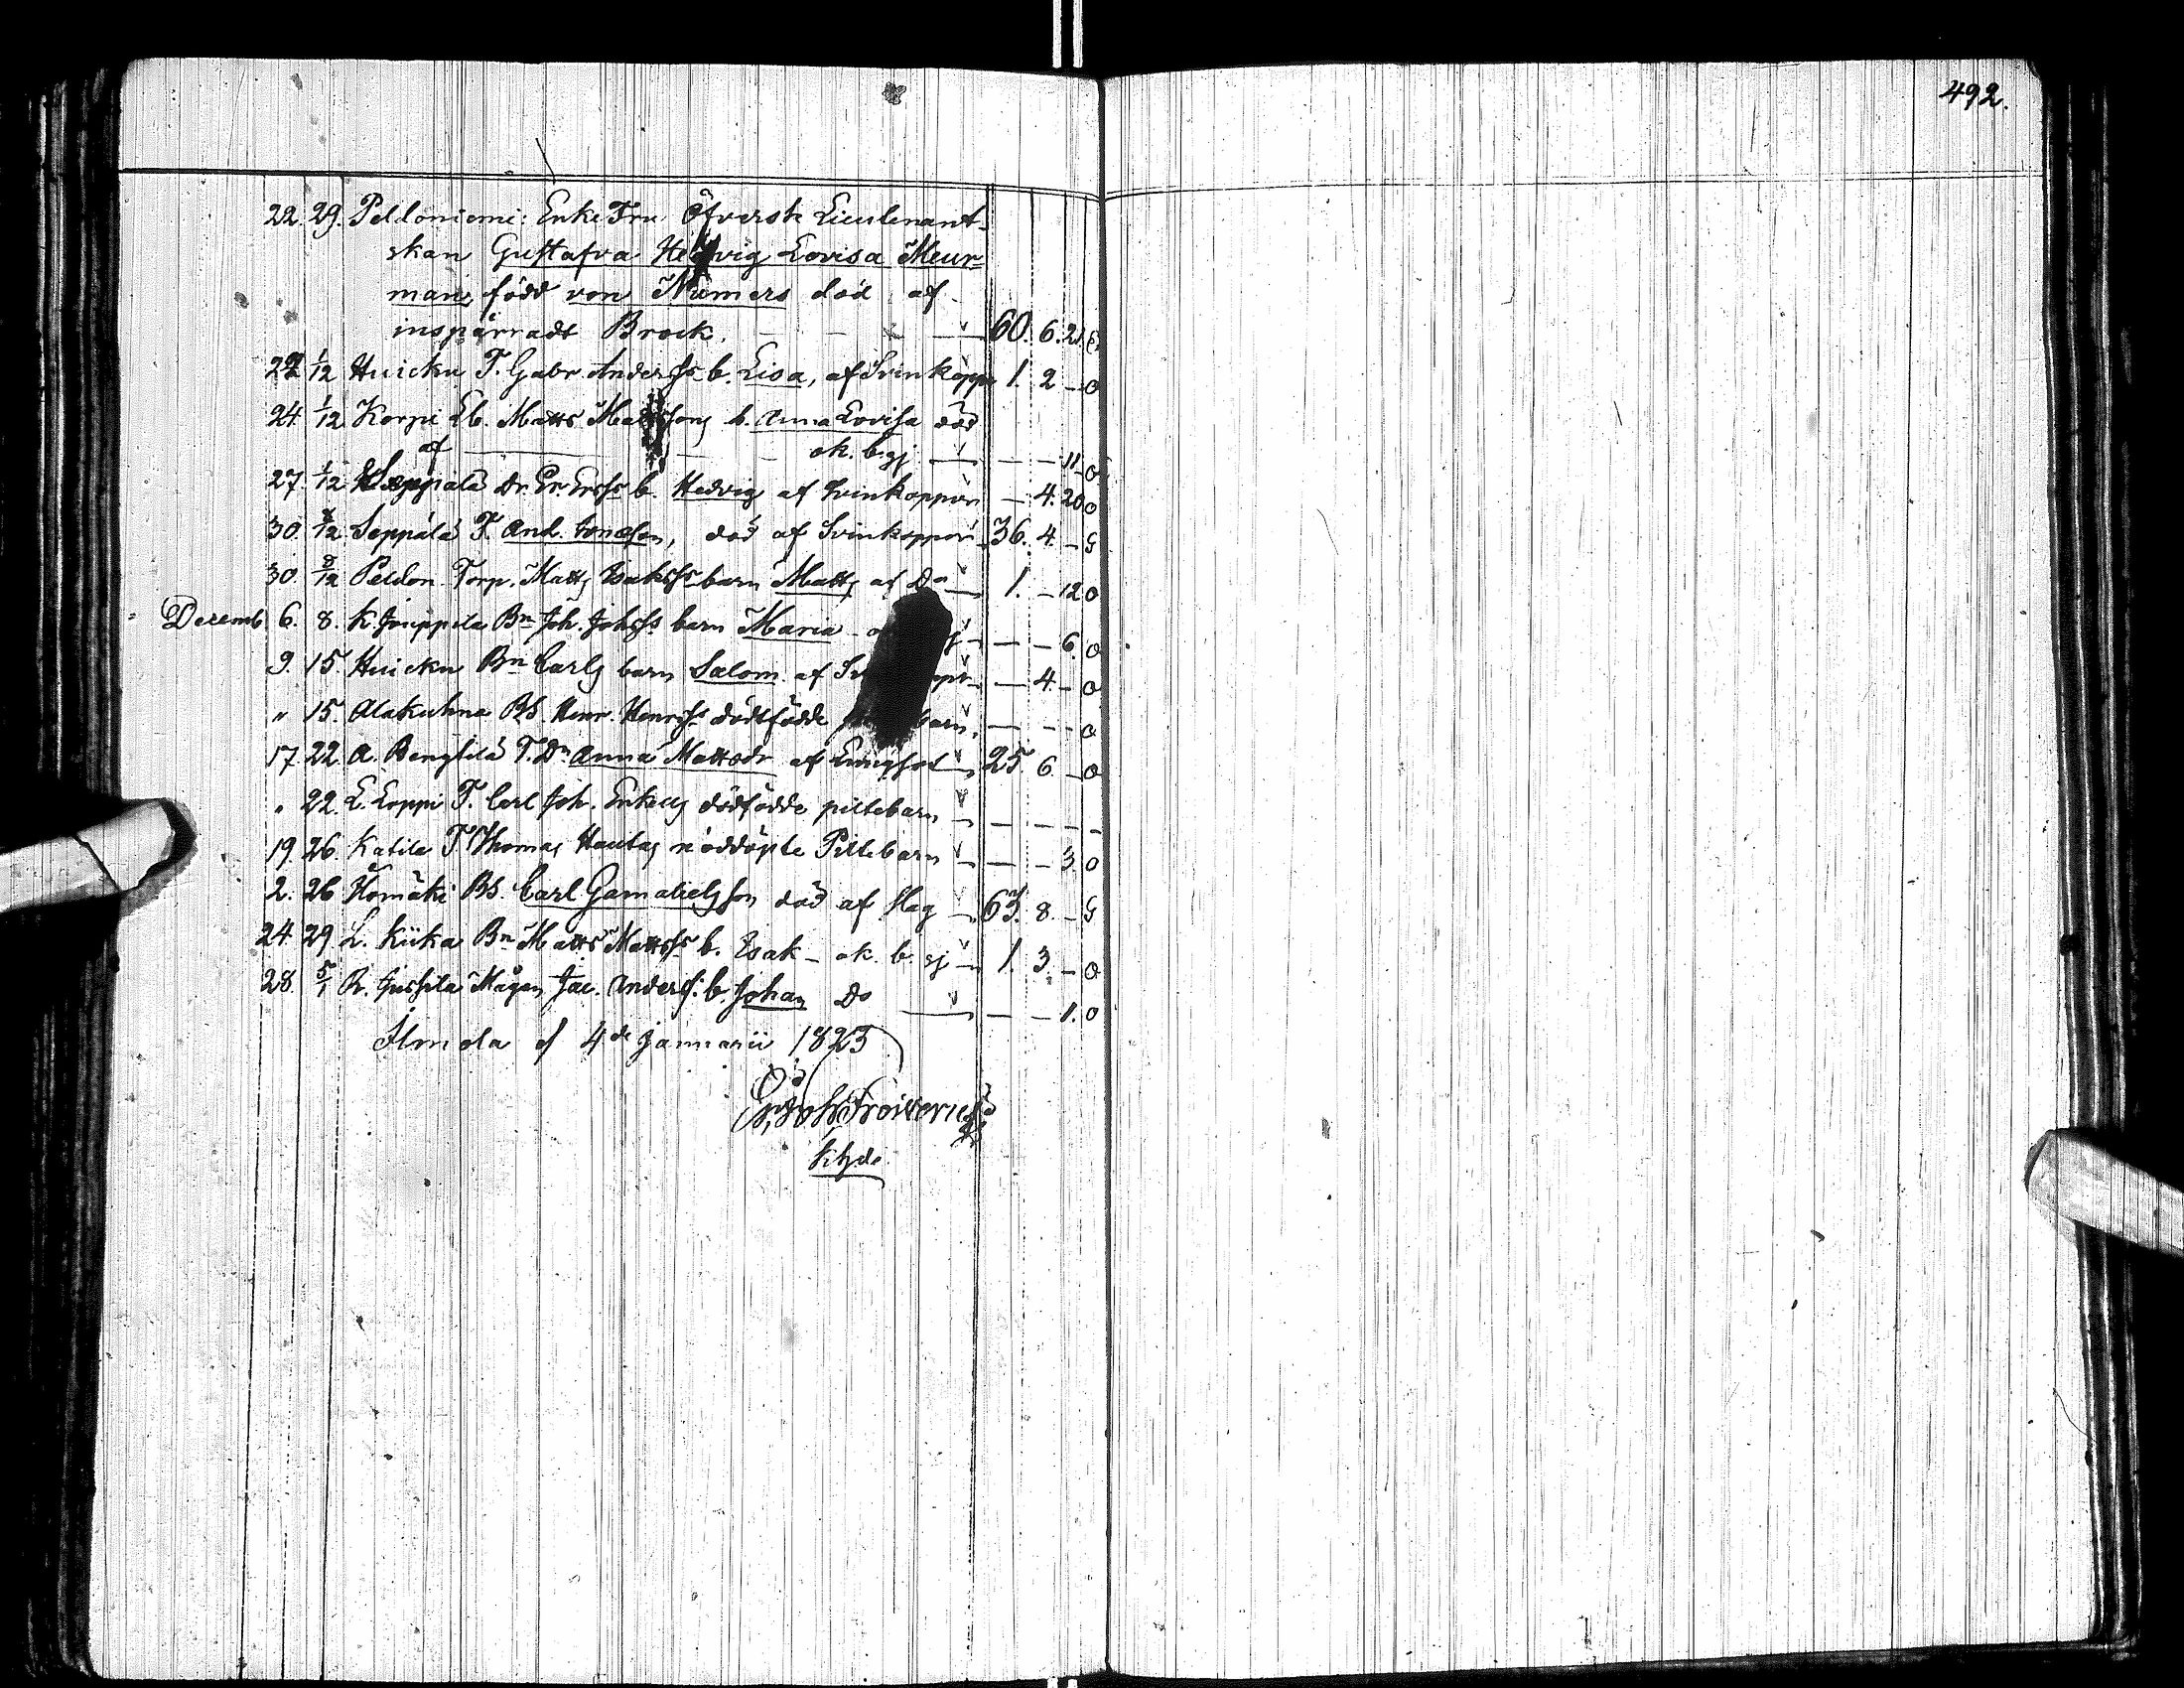 492.
22. 29. Pelloniemi: Enke Fru Öfverste Lieutenant-
skan Gustafva Hedvig Lovisa Meur-
man, född von Numers död af
inspärradt Brock. — — — — 60. 6. 21.
1/12 Huicku T. Gabr. Anderss. b. Lisa, af Svinkopp 1. 2 — O
24. 1/12 Korpi Matts Mattssons b. Anna Lovisa död
af — ok. b. sj — — — 11 — O
27. 1/12 Seppälä Dr. Er. Erss b. Hedvig af Svinkoppor — 4. 20 O
30. 8/12 Seppälä T. And. Jonasson, död af Svinkoppor — 36. 4. — G
30. 8/12 Peldon. Torp. Matts Isakss barn Matts af Do — 1. — 12 O
Decemb 6. 8. K. Jouppila Bn Joh. Johss barn Maria — — — 6. O
9. 15. Huicku Bn Carls barn Salom. af — 4. — O
" 15. Alakuhna BS. Henr. Henrss dödfödde barn, — — — O
17. 22. A. Bengtilä T. Dr Anna Mattsdr af Lungsot — 25. 6. — O
" 22. L. Loppi T. Carl Joh. Enkells dödfödde piltebarn — — — —
19. 26. Katila T Thomas Hautas nöddöpte Piltebarn — — — 3. O
2. 26 BS. Carl Gamalielsson död af Slag — 63. 8. — G
24. 29. L. Kiika Bn Matts Mattss b. Isak — ok. b. sj — 1. 3. — O
28. 5/1 R. Jussila Mågen Jac. Anderss. b. Johan Do — — — 1. O
Ilmola d 4de Januarii 1823